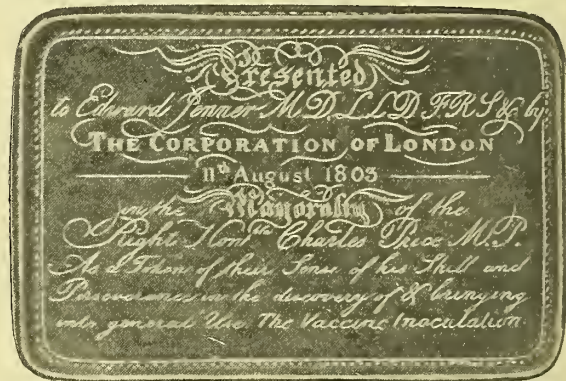 Presented
to Edward Jenner M D. L L D. F R S & by
THE CORPORATION OF LONDON
11th August 1803
in the Mayoralty of the
Right Honble Charles Price M.P.
As a Token of their Sense of his Skill and
Perseverance in the discovery of & bringing
into general Use The Vaccine Inoculation